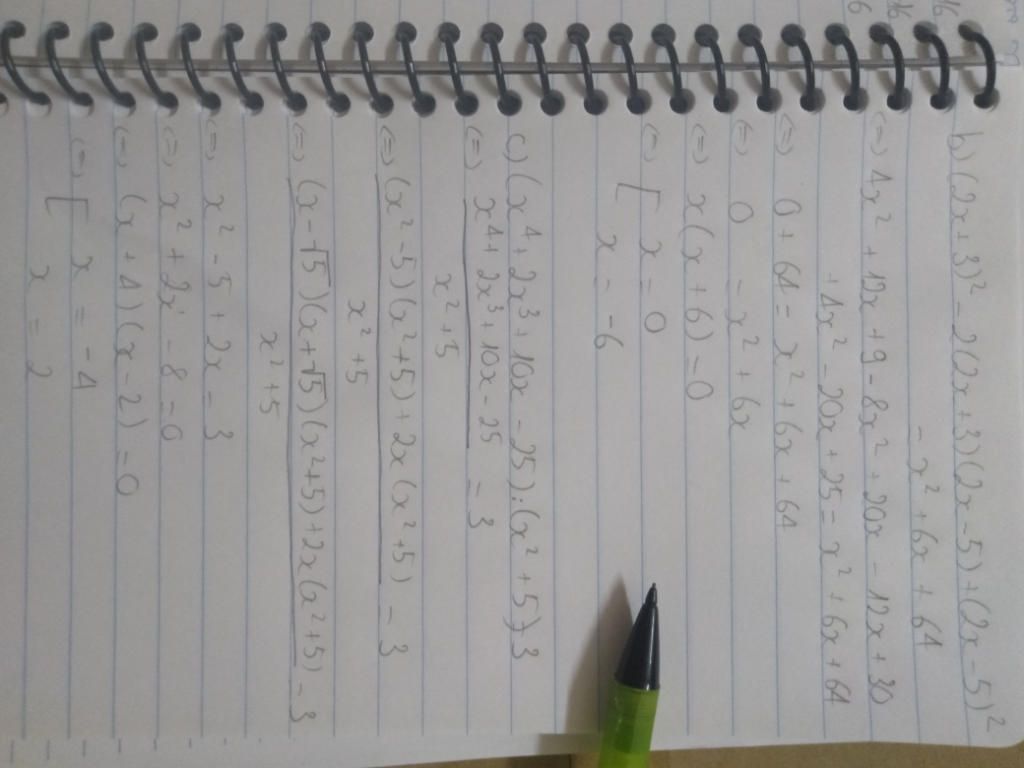 b) (2x+3)² - 2(2x+3)(2x-5) + (2x-5)²
= x² + 6x + 64
(=) 4x² + 12x + 9 - 8x² + 20x - 12x + 30
+ 4x² - 20x + 25 = x² + 6x + 64
(=) 0 + 64 = x² + 6x + 64
(=) 0 = x² + 6x
(=) x(x+6) = 0
(=) [ x = 0
x = -6
c) (x⁴ + 2x³ + 10x - 25) : (x² + 5) = 3
(=) x⁴ + 2x³ + 10x - 25 = 3
x² + 5
(=) (x² - 5)(x² + 5) + 2x(x² + 5) = 3
x² + 5
(=) (x - √5)(x + √5)(x² + 5) + 2x(x² + 5) = 3
x² + 5
(=) x² - 5 + 2x = 3
(=) x² + 2x - 8 = 0
(=) (x + 4)(x - 2) = 0
(=) [ x = -4
x = 2